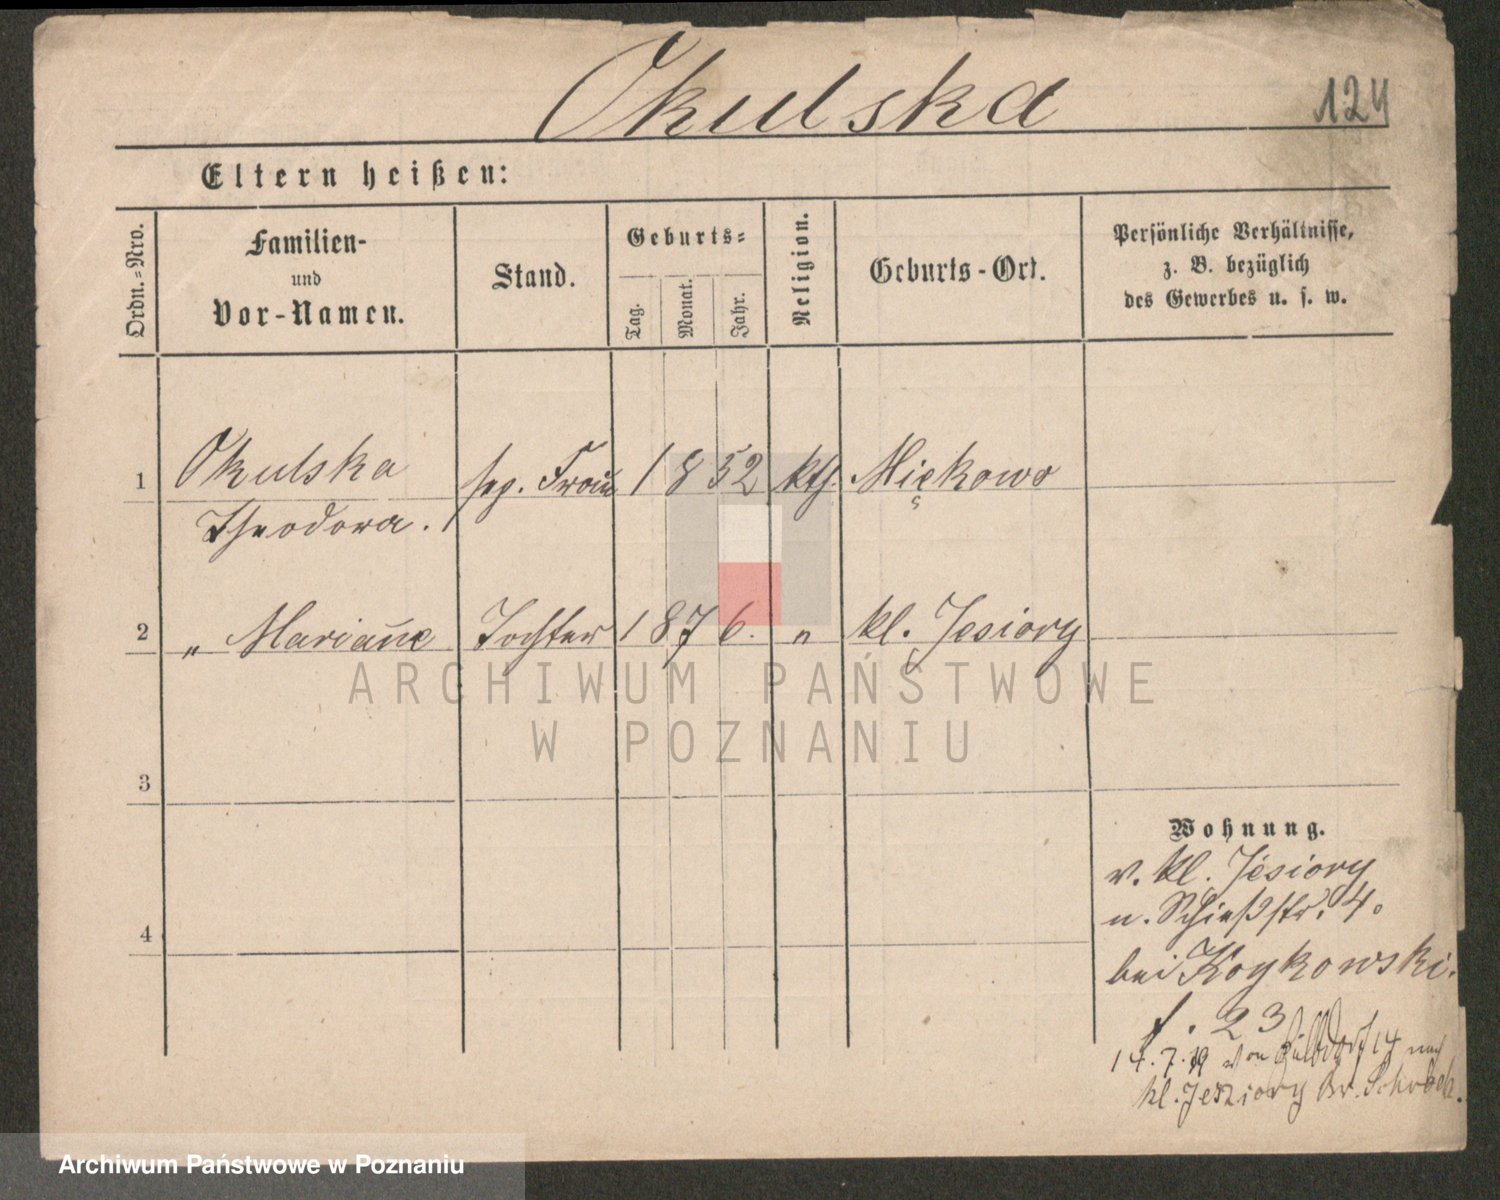 Okulska
124
Eltern heißen:
Ordn.=Nro.
Familien-
und
Vor-Namen.
Stand.
Geburts=
Tag.
Monat.
Jahr.
Religion.
Geburts-Ort.
Persönliche Verhältnisse,
z. B. bezüglich
des Gewerbes u. s. w.
1 Okulska sep. Frau 1852 kth. Miękowo
Theodora.
2 „ Marianne Tochter 1876. „ kl. Jesiory
ARCHIWUM PAŃSTWOWE
W POZNANIU
3
Wohnung.
v. kl. Jesiory
n. Schießstr. 4.
4
bei Koykowski.
f. 23
14.7.79 von 14 nach
kl. Jesziory Kr. Schroda.
Archiwum Państwowe w Poznaniu